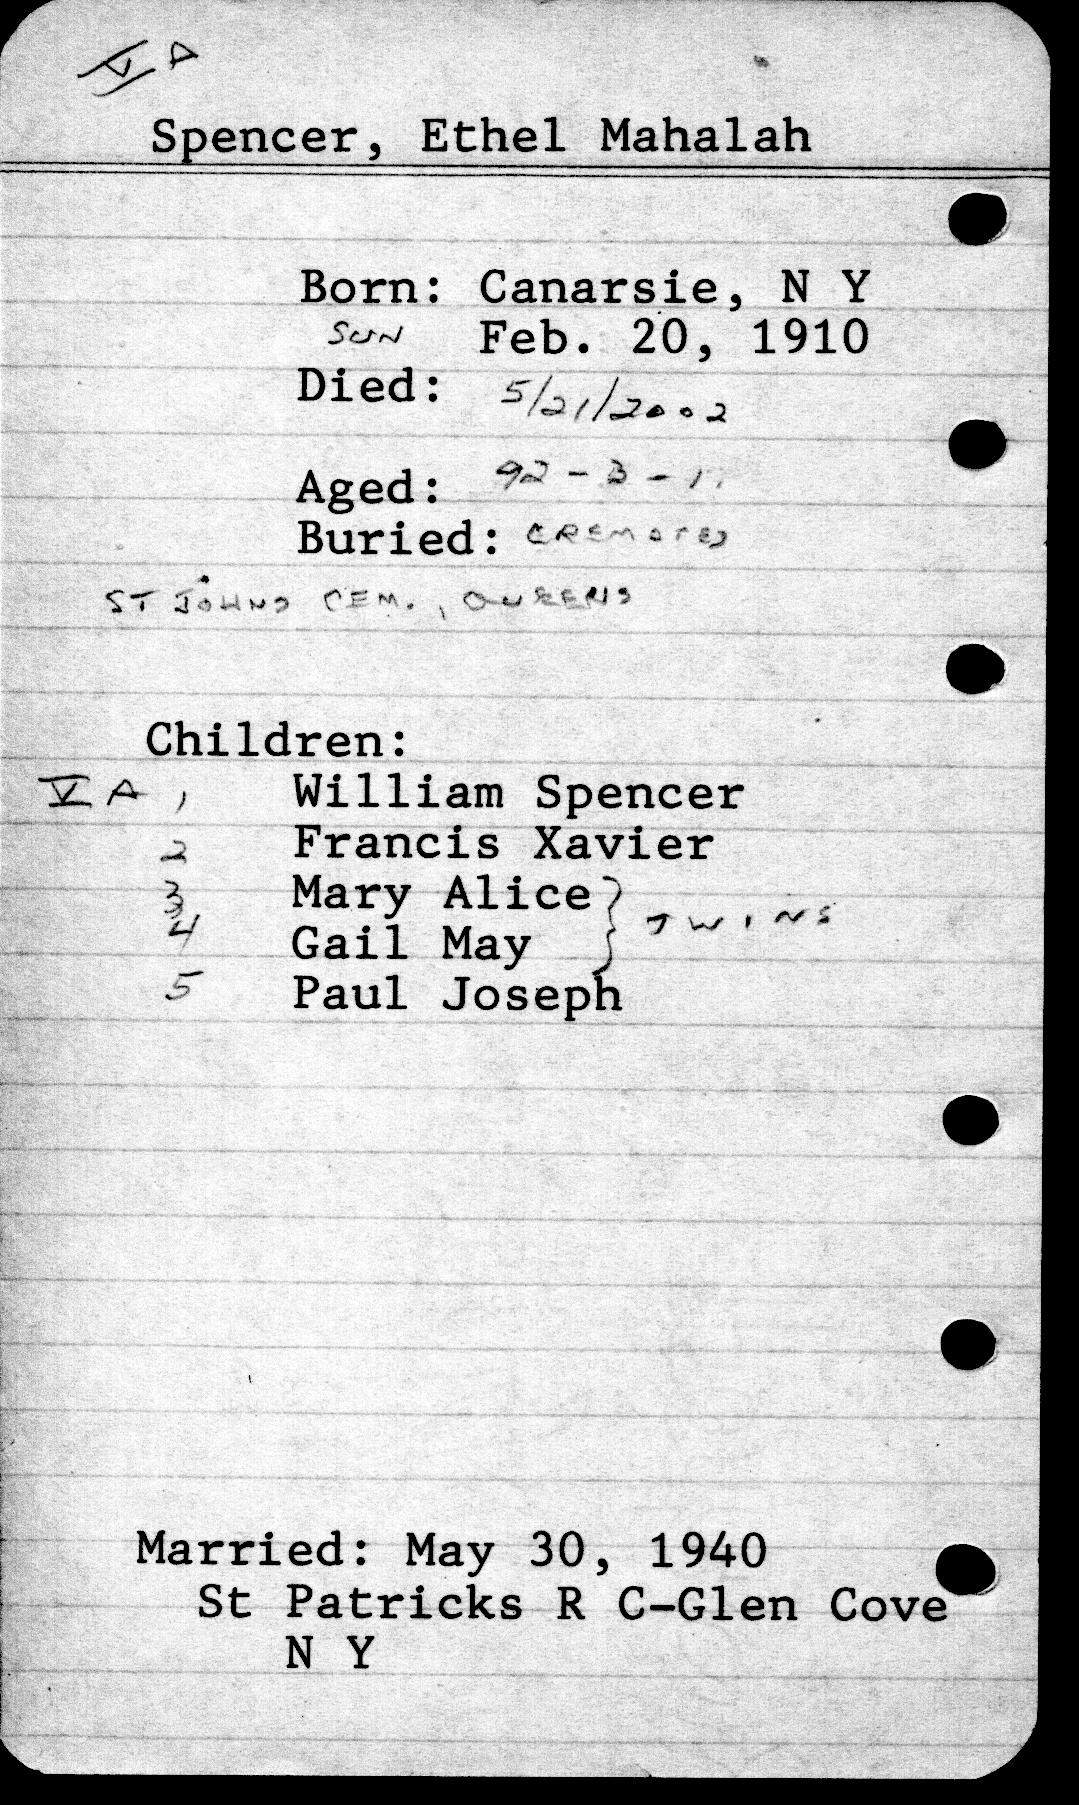 V A
Spencer, Ethel Mahalah
Born: Canarsie, N Y
SUN Feb. 20, 1910
Died: 5/21/2002
Aged: 92 - 3 - 1
Buried: CREMATED
ST JOHNS CEM., QUEENS
Children:
V A 1 William Spencer
2 Francis Xavier
3 Mary Alice } TWINS
4 Gail May
5 Paul Joseph
Married: May 30, 1940
St Patricks R C-Glen Cove
N Y